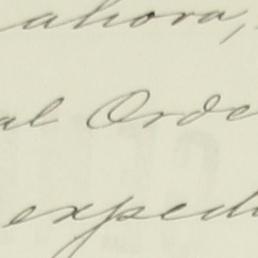 ahora,
al Orde
exped